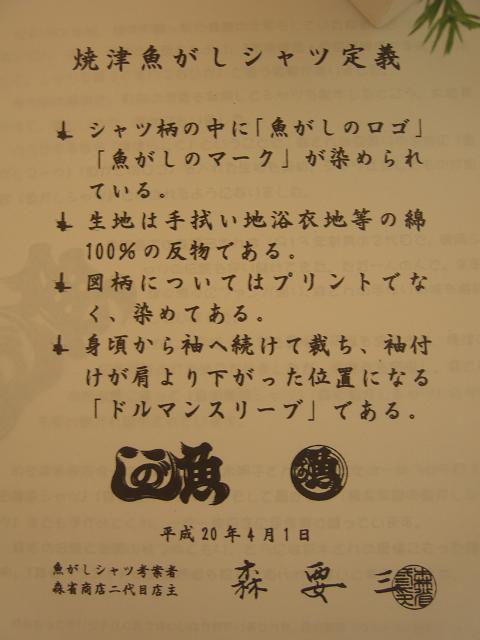 焼津魚がしシャツ定義
一、シャツ柄の中に「魚がしのロゴ」
「魚がしのマーク」が染められ
ている。
一、生地は手拭い地浴衣地等の綿
100%の反物である。
一、図柄についてはプリントでな
く、染めてある。
一、身頃から袖へ続けて裁ち、袖付
けが肩より下がった位置になる
「ドルマンスリーブ」である。
魚がし
平成20年4月1日
魚がしシャツ考案者
森省商店二代目店主
森要三